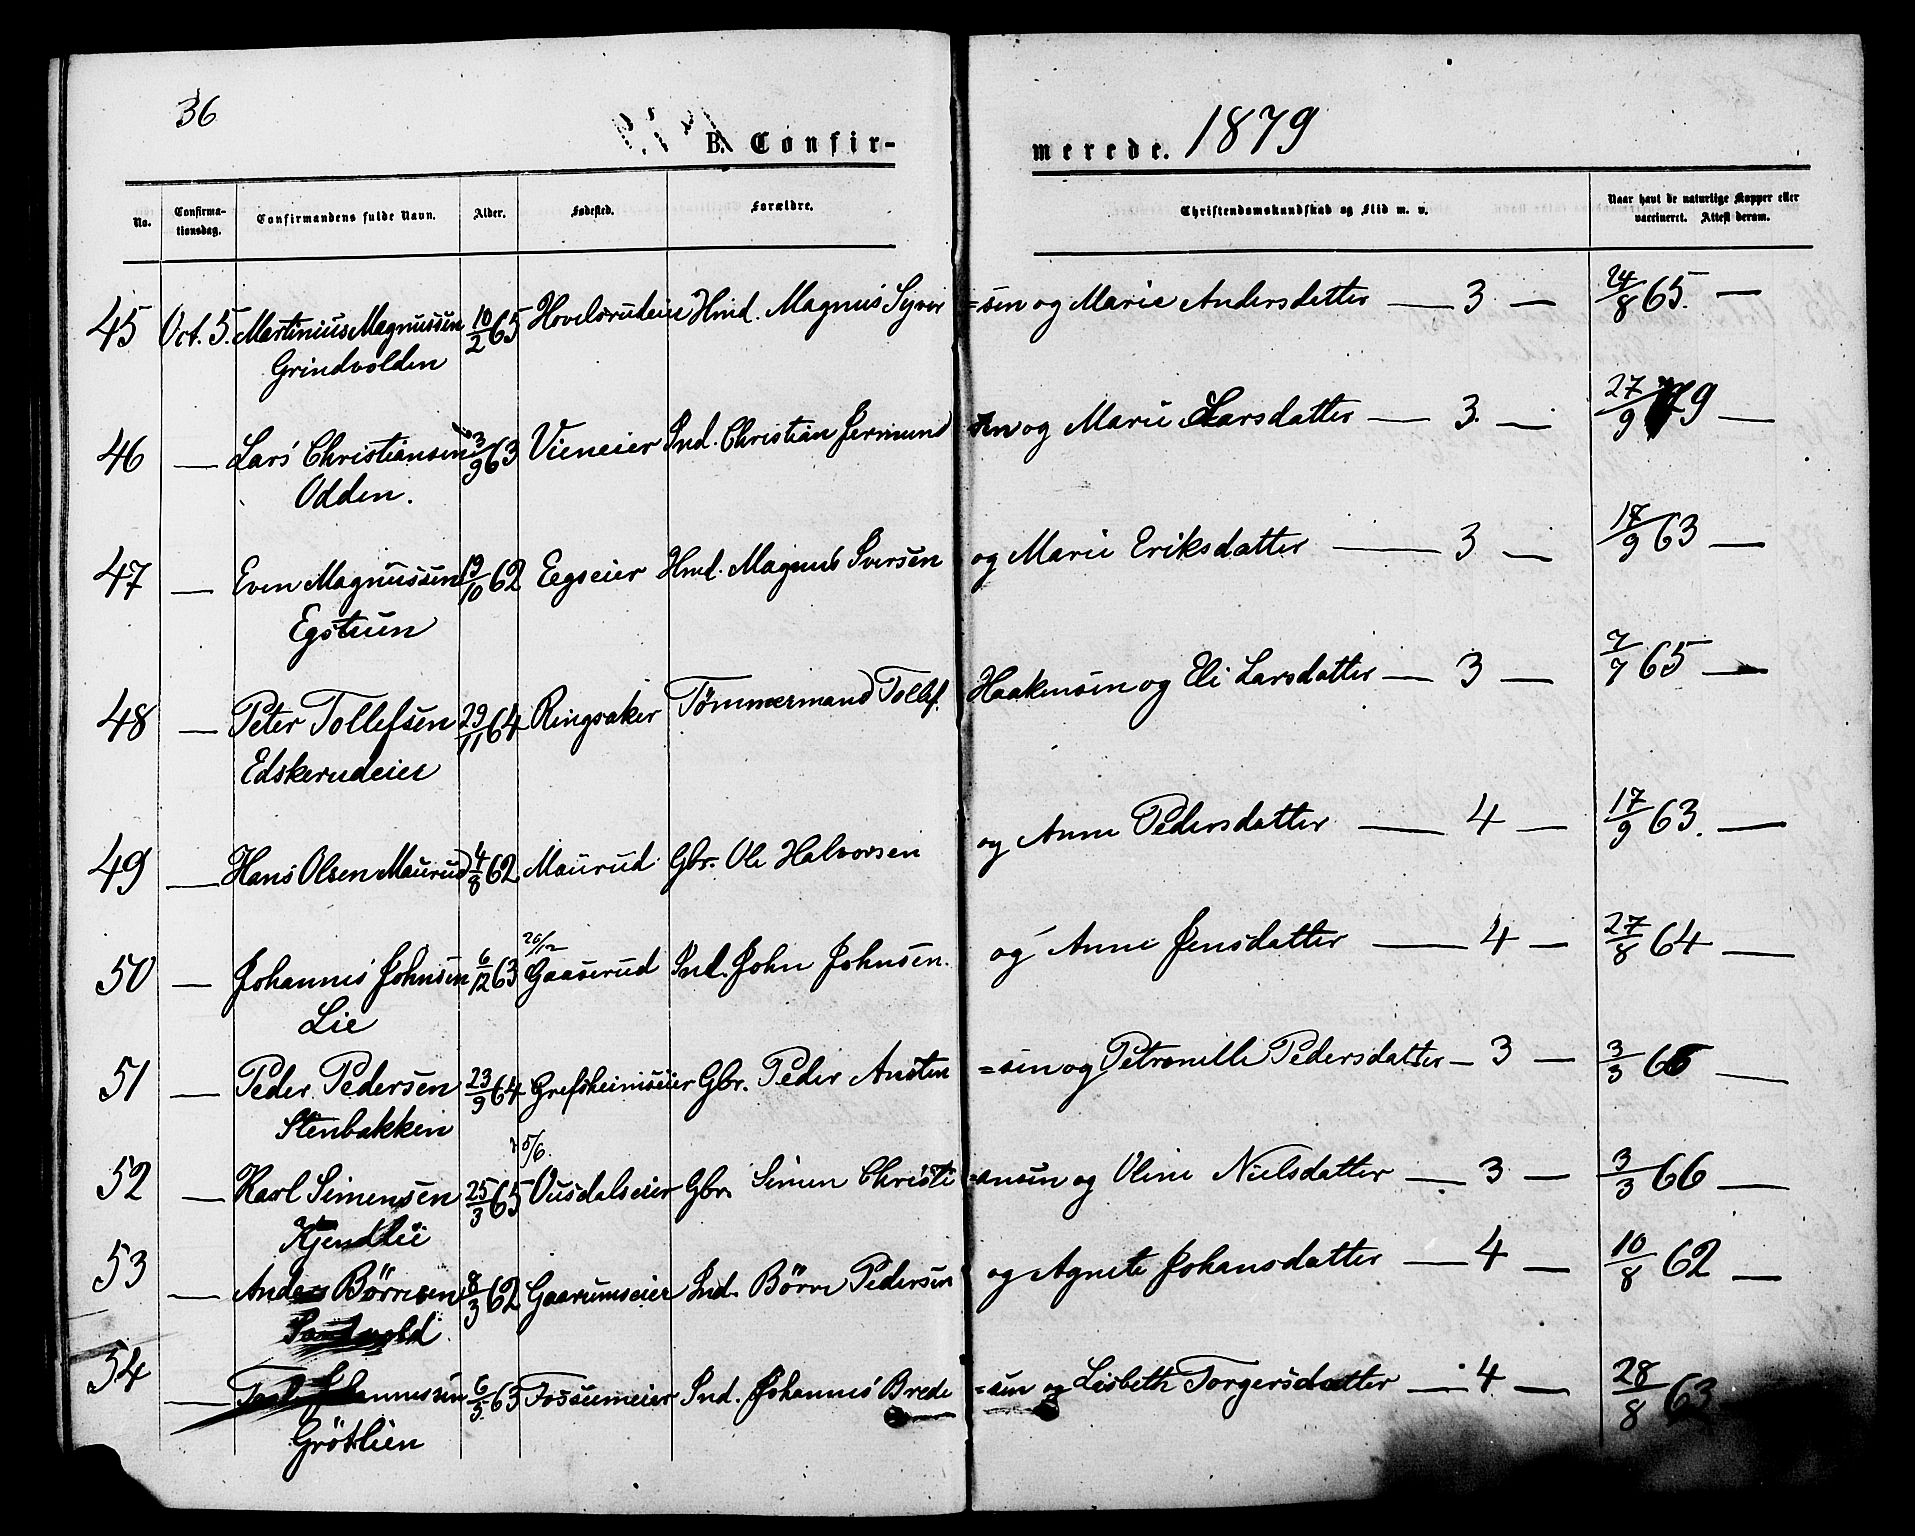 36
B. Confirmerede. 1879
No. Confirmationsdag. Confirmandens fulde Navn. Alder. Fødested. Forældre. Christendomskundskab og Flid m. v. Naar havt de naturlige Kopper eller vaccineret. Attest derom.
45 Oct. 5. Martinius Magnussen 10/2 65 Hovelsrudeier Hmd. Magnus Syver =sen og Marie Andersdatter — 3 — 24/8 65. —
Grindvolden
46 — Lars Christiansen 3/9 63 Vieneier Ind. Christian Jermund sen og Marie Larsdatter — 3. — 27/9 79 —
Odden.
47 — Even Magnussen 19/10 62 Eegseier Hmd. Magnus Iversen og Marie Eriksdatter — 3 — 17/9 63 —
Egstuen
48 — Peter Tollefsen 29/11 64 Ringsaker Tømmermand Tollef Haakensen og Eli Larsdatter — 3 — 7/7 65 —
Edskerudeier
49 — Hans Olsen Maurud 4/8 62 Maurud Gbr. Ole Halvorsen og Anne Pedersdatter — 4 — 17/9 63. —
50 — Johannes Johnsen 6/12 63 20/12 Gaaserud Ind. John Johnsen. og Anne Jensdatter — 4 — 27/8 64 —
Lie
51 — Peder Pedersen 23/9 64 Grefsheimseier Gbr. Peder Austen =sen og Petronille Pedersdatter — 3 — 3/3 66 —
Stenbakken
52 — Karl Simensen 25/3 65 5/6. Ousdalseier Gbr. Simen Christi =ansen og Oline Nielsdatter — 3 — 3/3 66 —
Kjendlie
53 — Anders Børresen 8/3 62 Gaarumseier Ind. Børre Pedersen og Agnete Johansdatter — 4 — 10/8 62 —
Sandvold
54 — Johannessen 6/5 63 Fossumeier Ind. Johannes Brede =sen og Lisbeth Torgersdatter — 4 — 28/8 63
Grötlien